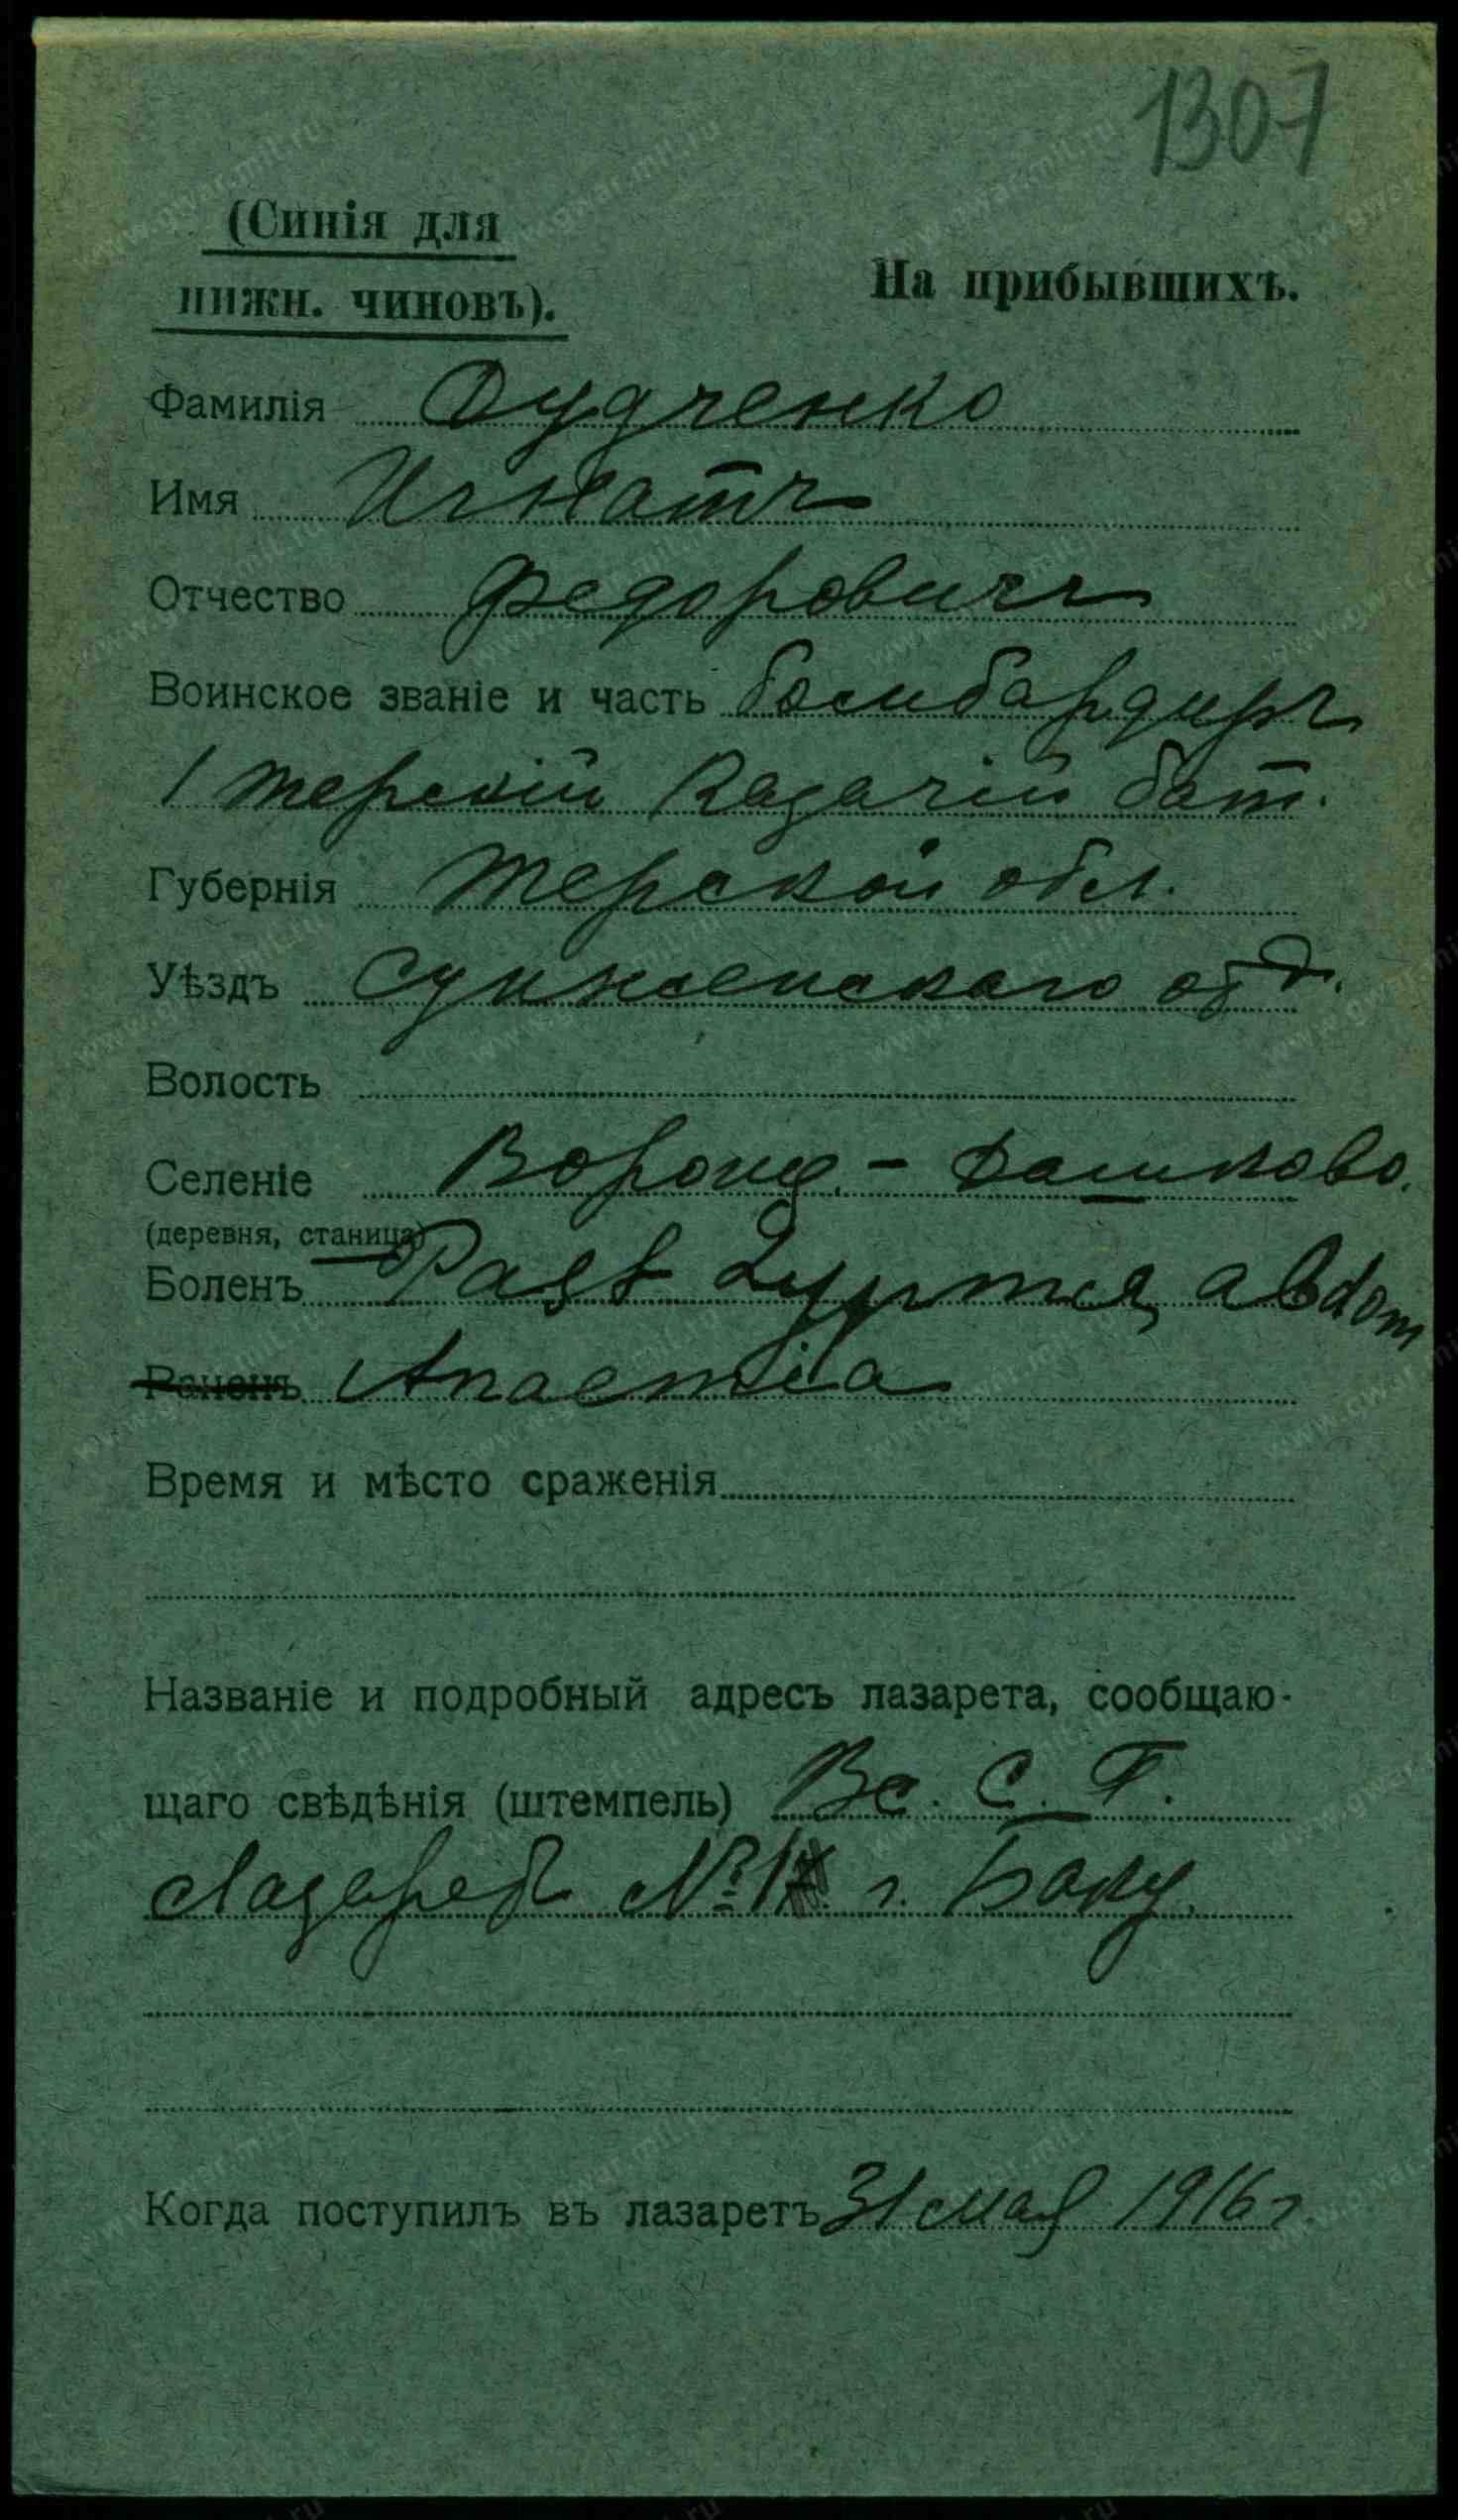 1307
(Синія для
нижн. чиновъ).
На прибывшихъ.
Фамилія Дудченко
Имя Игнатъ
Отчество Федоровичъ
Воинское званіе и часть бомбардиръ
1 Терскій Казачій бат.
Губернія Терской обл.
Уѣздъ Сунженскаго отд.
Волость
Селеніе Воронц. - Дашково.
(деревня, станица)
Боленъ Past abdom
Раненъ Anaemia
Время и мѣсто сраженія
Названіе и подробный адресъ лазарета, сообщаю-
щаго свѣдѣнія (штемпель) Вс. С. Г.
Лазарет № 1 г. Баку
Когда поступилъ въ лазаретъ 31 мая 1916 г.